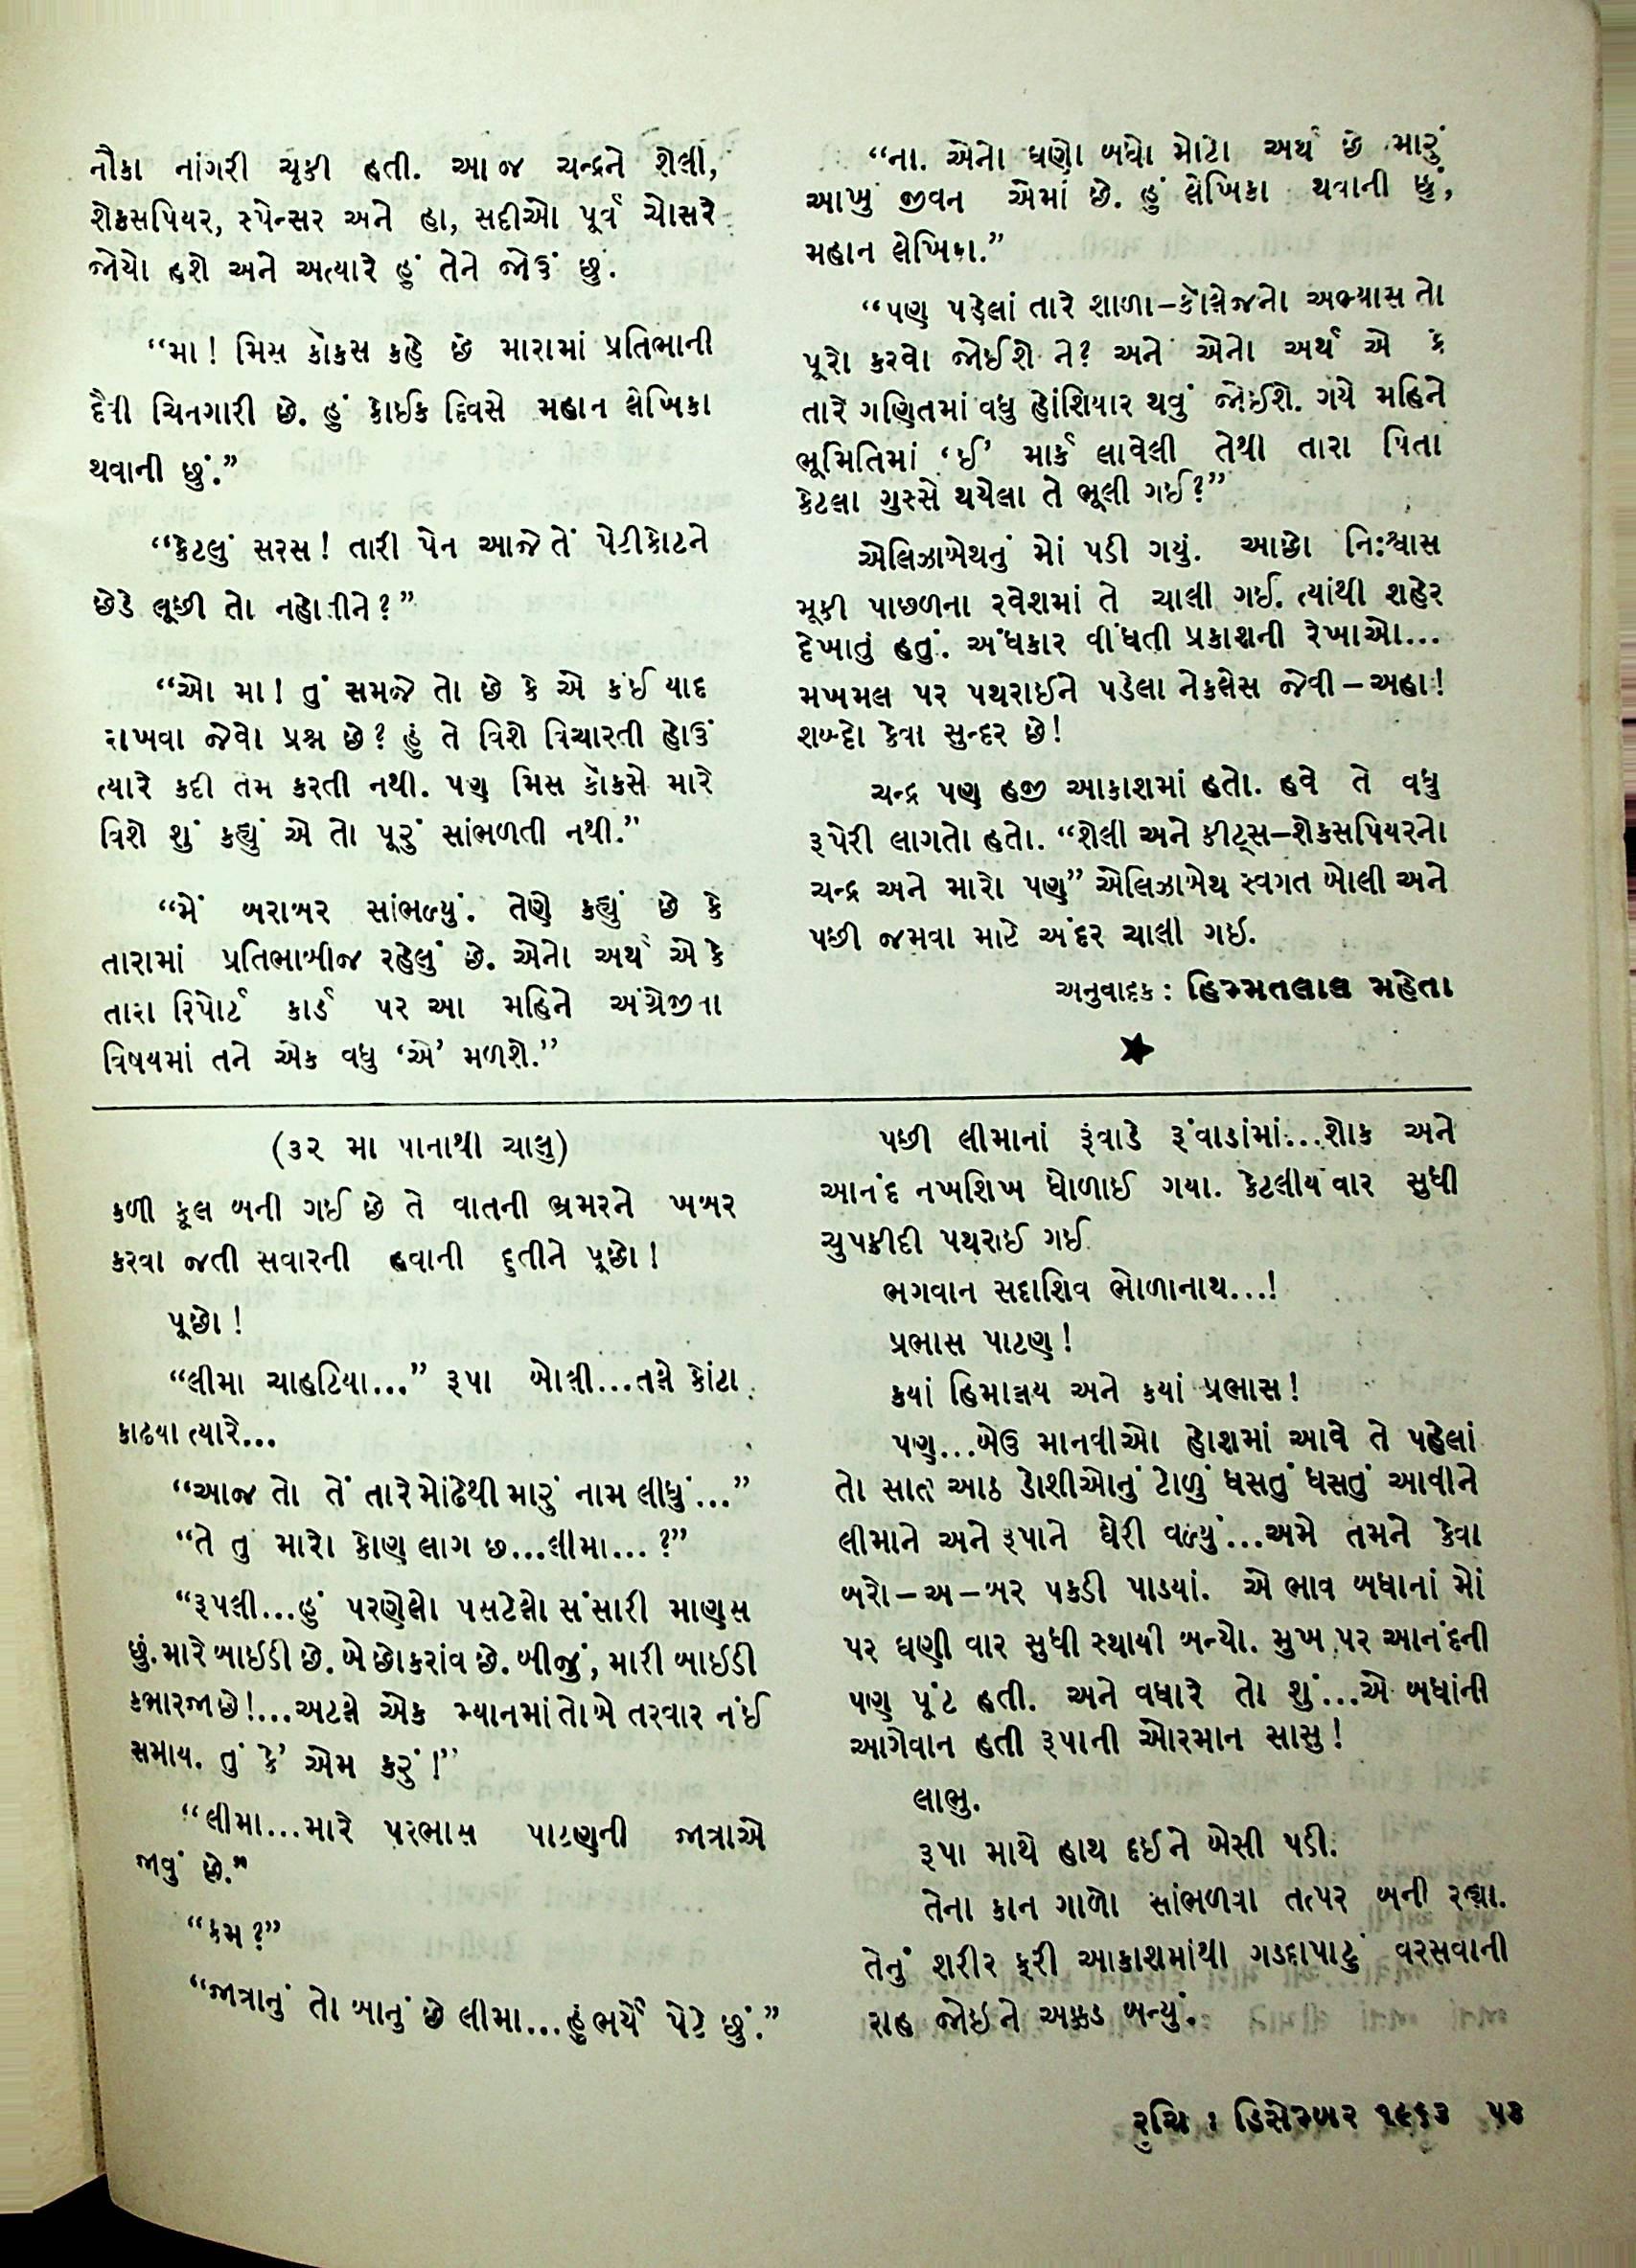 નૌકા નાંગરી ચૂકી હતી. આ જ ચન્દ્રને શેલી,
શેક્સપિયર, સ્પેન્સર અને હા, સદીઓ પૂર્વે ચોસરે
જોયો હશે અને અત્યારે હું તેને જોઉં છું.
“મા! મિસ કૉક્સ કહે છે મારામાં પ્રતિભાની
દૈવી ચિનગારી છે. હું કોઈક દિવસે મહાન લેખિકા
થવાની છું.”
“કેટલું સરસ! તારી પેન આજે તેં પેટીકોટને
છેડે લૂછી તો નહોતીને?”
“ઓ મા! તું સમજે તો છે કે એ કંઈ યાદ
રાખવા જેવો પ્રશ્ન છે? હું તે વિશે વિચારતી હોઉં
ત્યારે કદી તેમ કરતી નથી. પણ મિસ કૉક્સે મારે
વિશે શું કહ્યું એ તો પૂરું સાંભળતી નથી.”
“મેં બરાબર સાંભળ્યું. તેણે કહ્યું છે કે
તારામાં પ્રતિભાબીજ રહેલું છે. એનો અર્થ એ કે
તારા રિપોર્ટ કાર્ડ પર આ મહિને અંગ્રેજીના
વિષયમાં તને એક વધુ ‘એ’ મળશે.”
“ના. એનો ઘણો બધો મોટો અર્થ છે મારું
આખું જીવન એમાં છે. હું લેખિકા થવાની છું,
મહાન લેખિકા.”
“પણ પહેલાં તારે શાળા–કૉલેજનો અભ્યાસ તો
પૂરો કરવો જોઈશે ને? અને એનો અર્થ એ કે
તારે ગણિતમાં વધુ હોંશિયાર થવું જોઈશે. ગયે મહિને
ભૂમિતિમાં ‘ઈ’ માર્ક લાવેલી તેથી તારા પિતા
કેટલા ગુસ્સે થયેલા તે ભૂલી ગઈ?”
એલિઝાબેથનું મોં પડી ગયું. આછો નિ:શ્વાસ
મૂકી પાછળના રવેશમાં તે ચાલી ગઈ. ત્યાંથી શહેર
દેખાતું હતું. અંધકાર વીંધતી પ્રકાશની રેખાઓ...
મખમલ પર પથરાઈને પડેલા નેકલેસ જેવી – અહા!
શબ્દો કેવા સુન્દર છે!
ચન્દ્ર પણ હજી આકાશમાં હતો. હવે તે વધુ
રૂપેરી લાગતો હતો. “શેલી અને કીટ્સ–શેક્સપિયરનો
ચન્દ્ર અને મારો પણ” એલિઝાબેથ સ્વગત બોલી અને
પછી જમવા માટે અંદર ચાલી ગઈ.
અનુવાદક : હિમ્મતલાલ મહેતા
(૩૨ મા પાનાથી ચાલુ)
કળી ફૂલ બની ગઈ છે તે વાતની ભ્રમરને ખબર
કરવા જતી સવારની હવાની દુતીને પૂછો!
પૂછો!
“લીમા ચાહટિયા...” રૂપા બોલી...તલે કાંટા
કાઢયા ત્યારે...
“આજ તો તેં તારે મોંઢેથી મારું નામ લીધું...”
“તે તુ મારો કોણ લાગ છ...લીમા... ?”
“રૂપલી...હું પરણેલો પસટેલો સંસારી માણસ
છું. મારે બાઈડી છે. બે છોકરાંવ છે. બીજું, મારી બાઈડી
કભારજા છે!...અટલે એક મ્યાનમાં તો બે તરવાર નંઈ
સમાય. તું કે’ એમ કરું!”
“લીમા...મારે પરભાસ પાટણની જાત્રાએ
જાવું છે.”
“કેમ?”
“જાત્રાનું તો બાનું છે લીમા...હું ભર્યે પેટે છું.”
પછી લીમાનાં રૂંવાડે રૂંવાડાંમાં...શોક અને
આનંદ નખશિખ ઘોળાઈ ગયા. કેટલીય વાર સુધી
ચુપકીદી પથરાઈ ગઈ
ભગવાન સદાશિવ ભોળાનાથ...!
પ્રભાસ પાટણ!
કયાં હિમાલય અને કયાં પ્રભાસ!
પણ...બેઉ માનવીઓ હોશમાં આવે તે પહેલાં
તો સાત આઠ ડોશીઓનું ટોળું ધસતું ધસતું આવીને
લીમાને અને રૂપાને ઘેરી વળ્યું...અમે તમને કેવા
બરો–અ–બર પકડી પાડયાં. એ ભાવ બધાનાં મોં
પર ઘણી વાર સુધી સ્થાયી બન્યો. મુખ પર આનંદની
પણ પૂંટ હતી. અને વધારે તો શું...એ બધાંની
આગેવાન હતી રૂપાની ઓરમાન સાસુ!
લાભુ.
રૂપા માથે હાથ દઈને બેસી પડી.
તેના કાન ગાળો સાંભળવા તત્પર બની રહ્યા.
તેનું શરીર ફરી આકાશમાંથી ગડદાપાટું વરસવાની
રાહ જોઇને અક્કડ બન્યું.
રુચિ : ડિસેમ્બર ૧૯૬૩ ૫૩